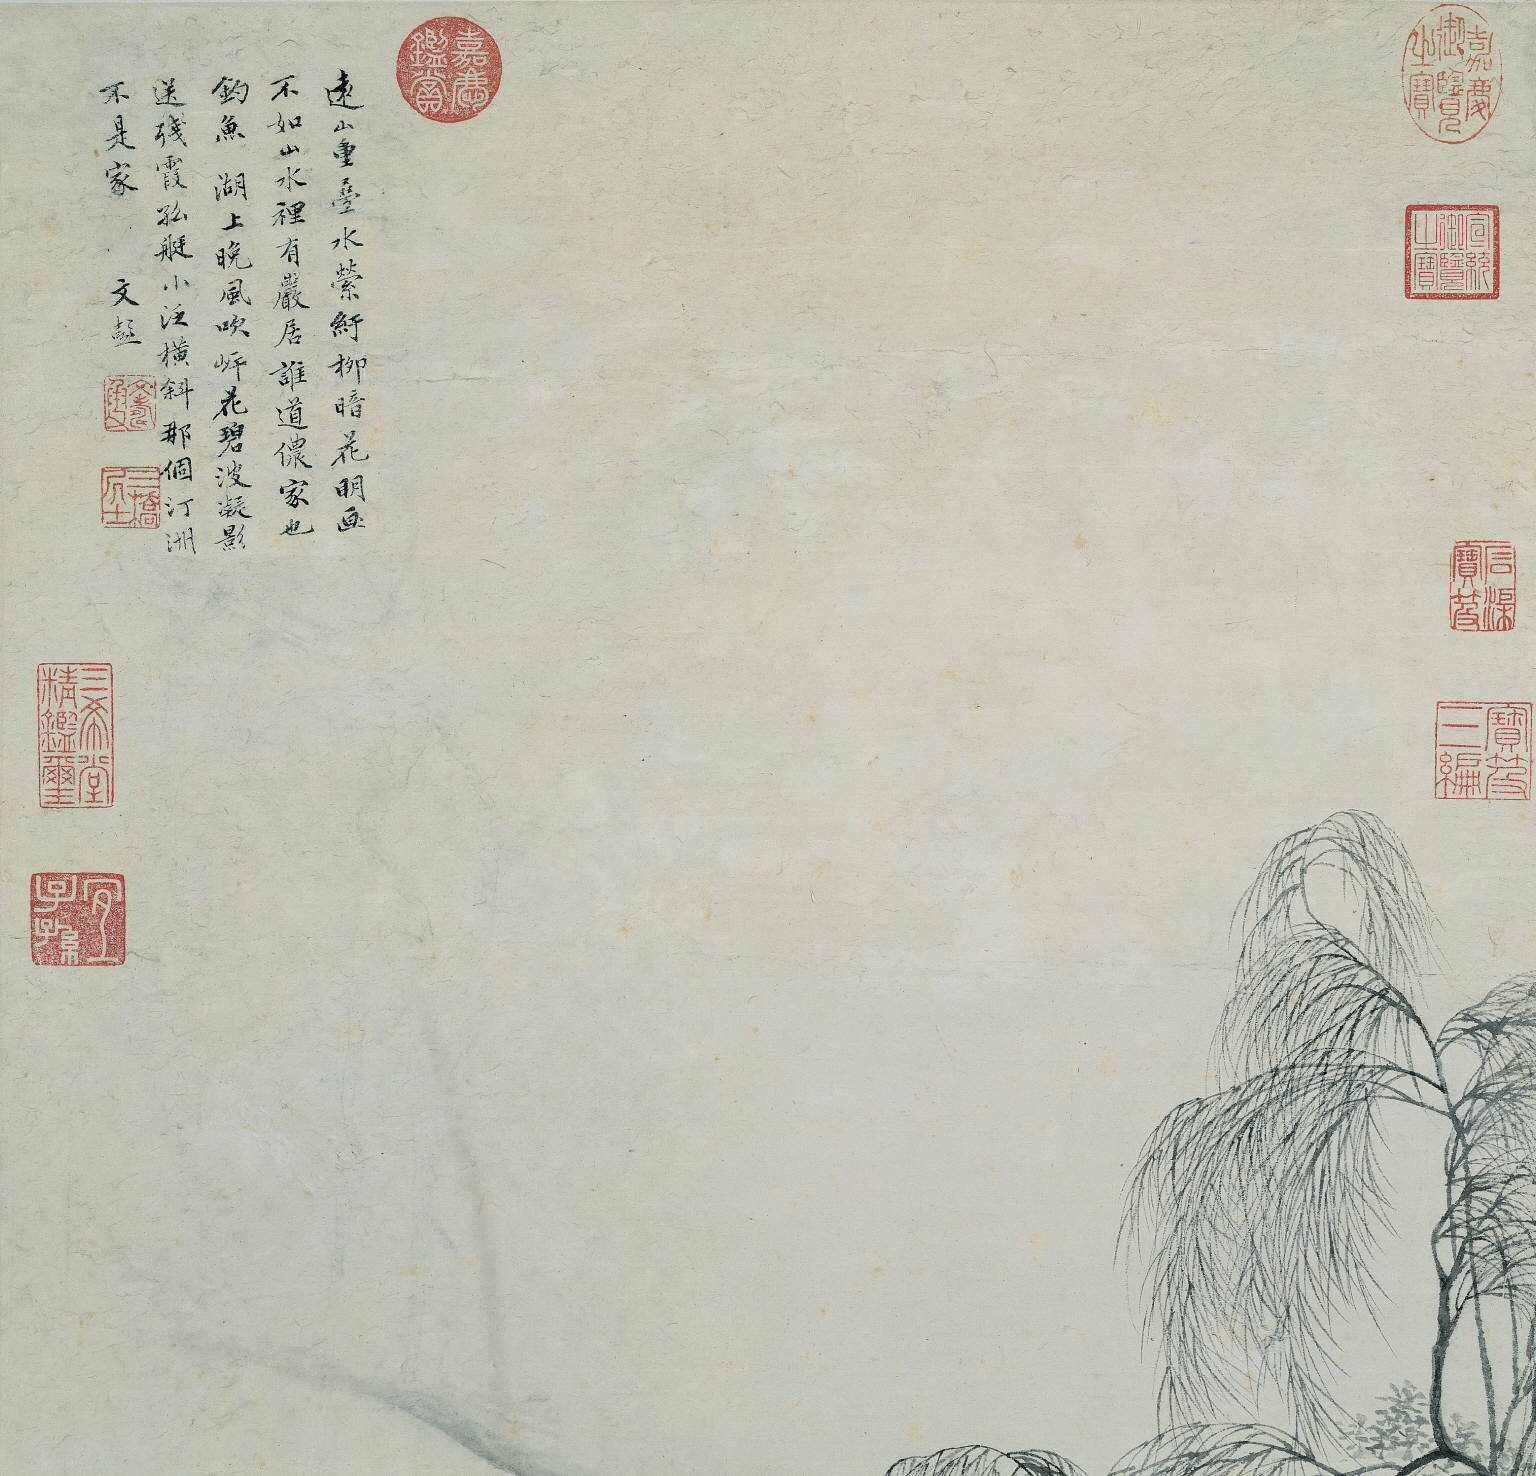 嘉慶御覽之寶
宣統御覽之寶
石渠寶笈
寶笈三編
嘉慶鑑賞
遠山重疊水縈紆柳暗花明画
不如山水裡有巖居誰道儂家也
釣魚 湖上晚風吹岍花碧波凝影
送殘霞孤艇小泛橫斜那個汀洲
不是家 文彭
三橋居士
三希堂精鑑璽
宜子孫